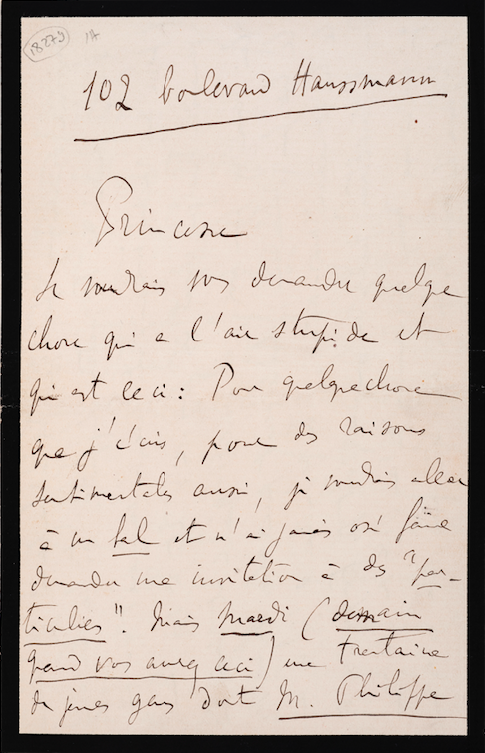 18279 1A
102 boulevard Haussmann
Princesse
Je voudrais vous demander quelque
chose qui a l'air stupide et
qui est ceci : Pour quelque chose
que j'écris, pour des raisons
sentimentales aussi, je voudrais aller
à un bal et n'ai jamais osé faire
demander une invitation à des "par-
ticuliers". Mais mardi (demain
quand vous aurez ceci) une trentaine
de jeunes gens dont M. Philippe